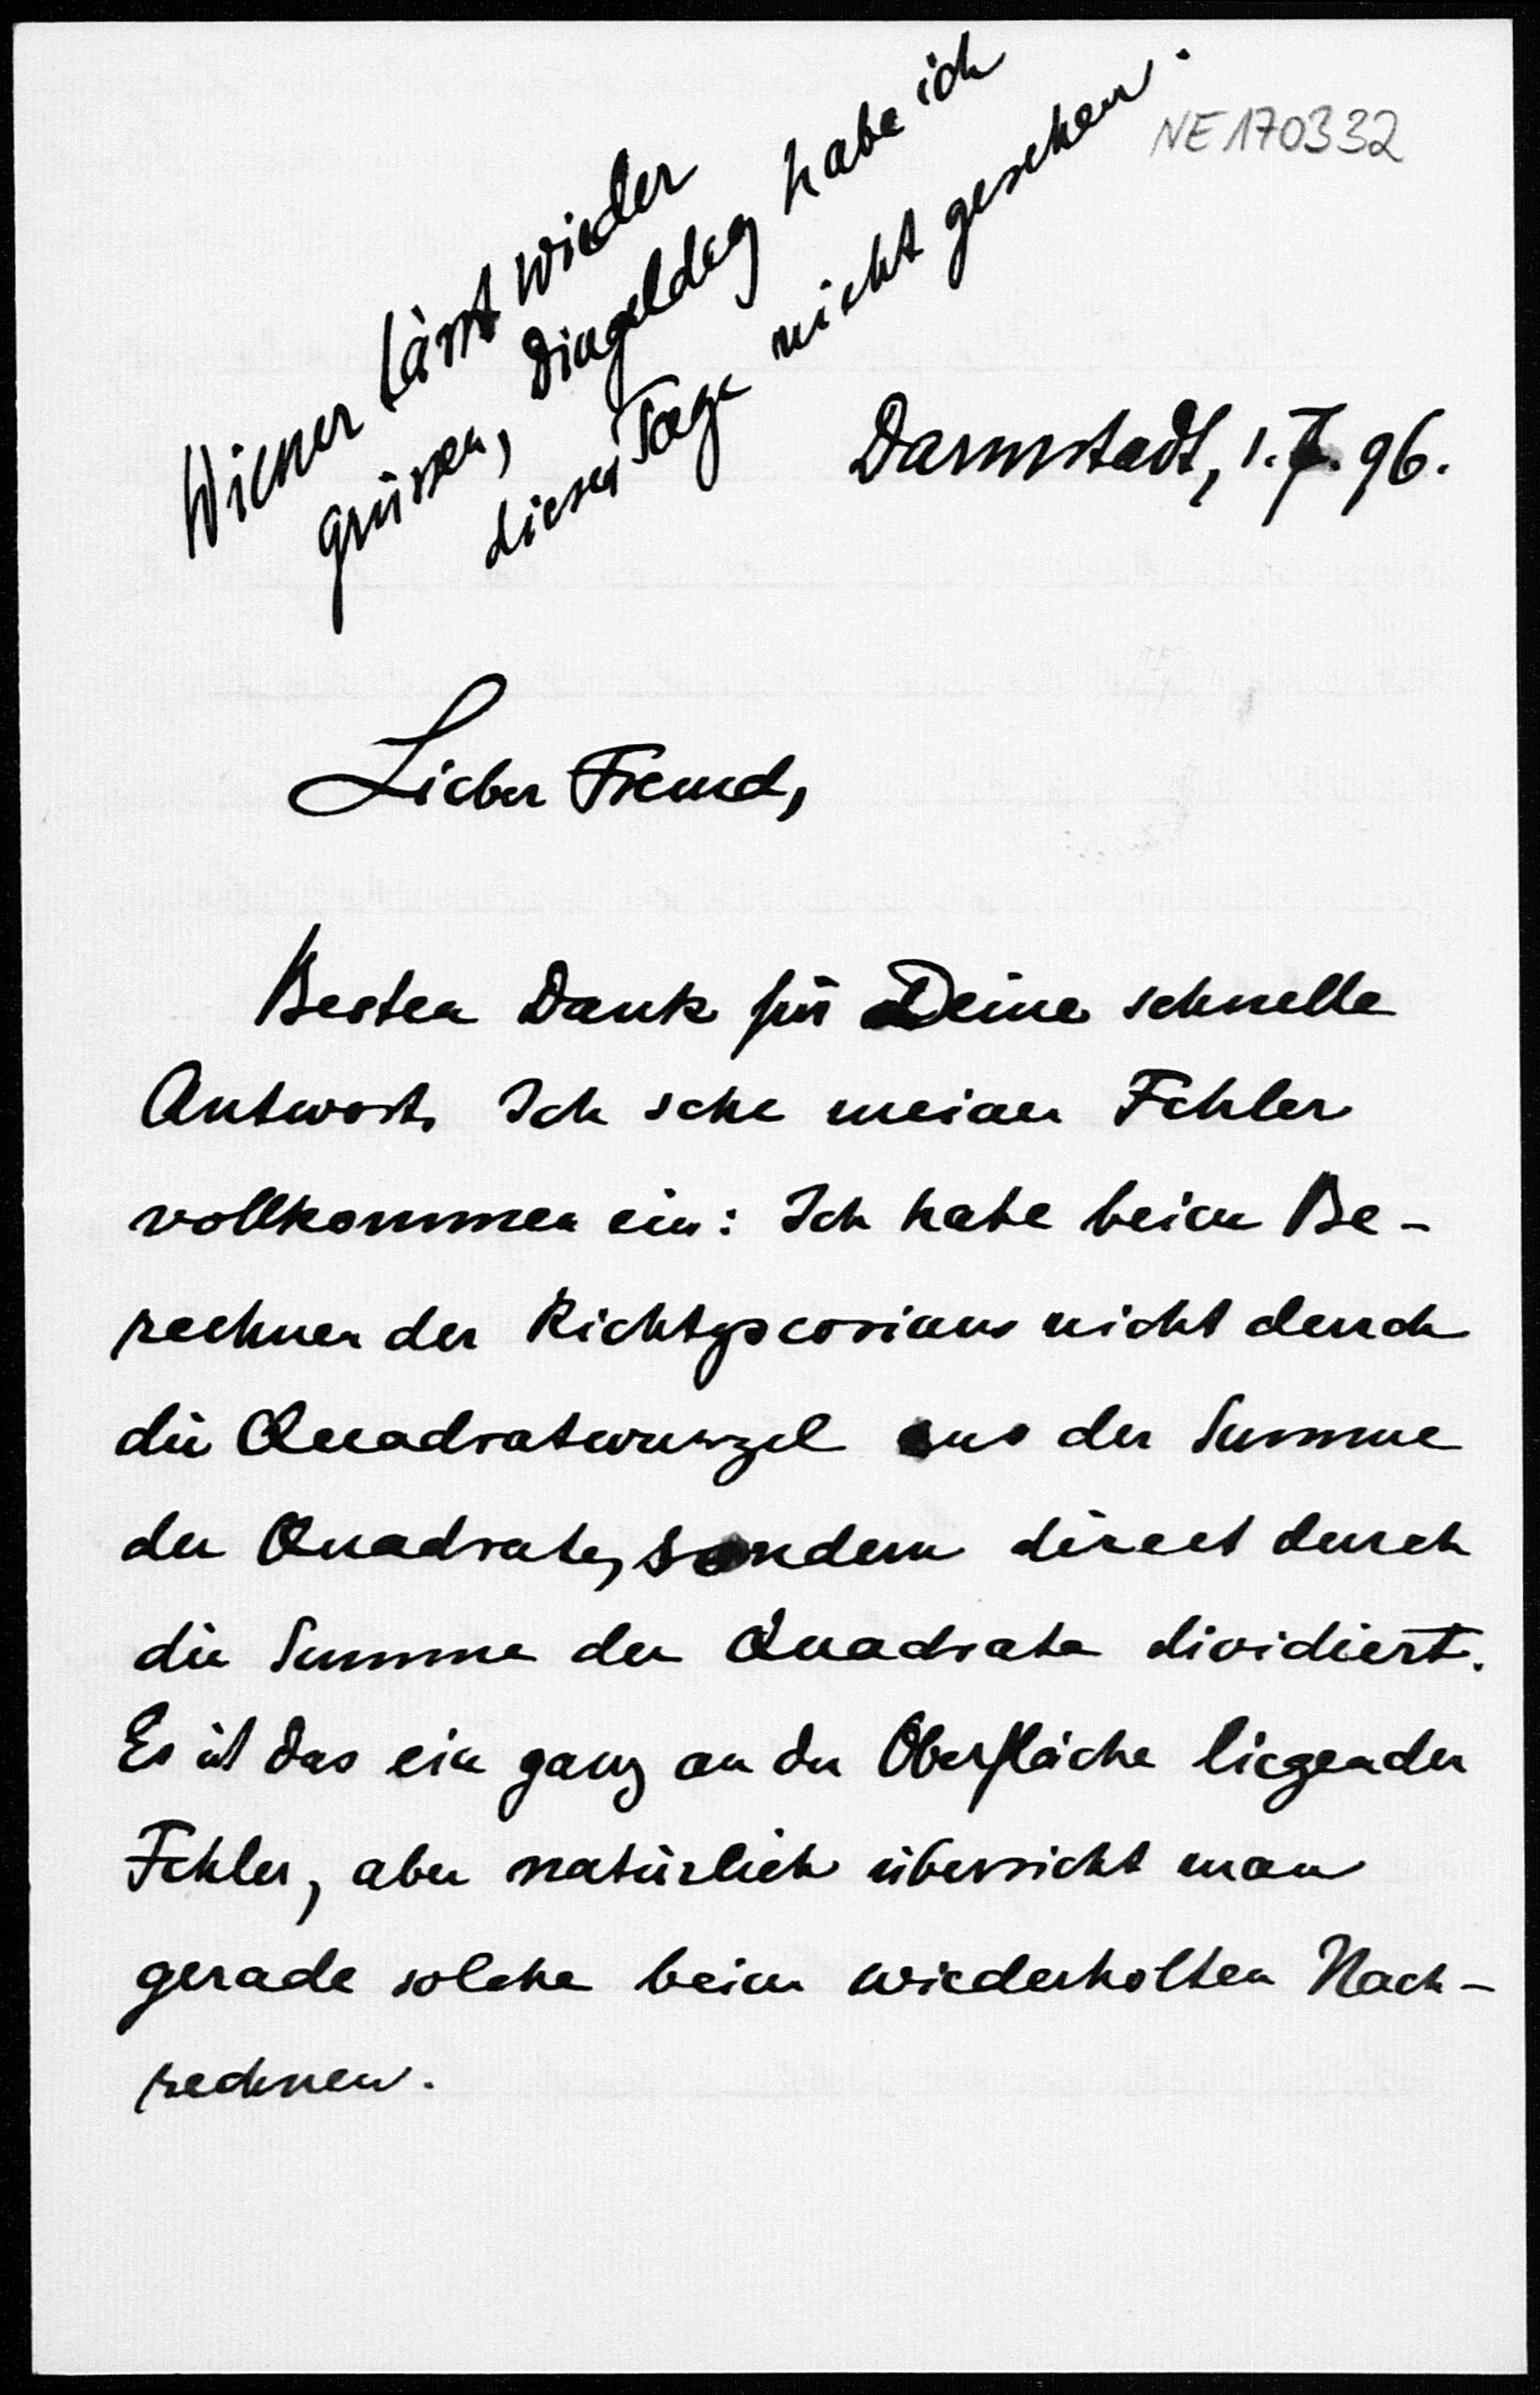 Wiener lässt wieder
grüssen, Dingeldey habe ich
dieser Tage nicht gesehen.
NE 170332
Darmstadt, 1. 7. 96.
Lieber Freund,
Besten Dank für Deine schnelle
Antwort. Ich sehe meinen Fehler
vollkommen ein: Ich habe beim Be-
rechnen der Richtgscosinus nicht durch
die Quadratwurzel aus der Summe
der Quadrate, sondern direct durch
die Summe der Quadrate dividiert.
Es ist das ein ganz an der Oberfläche liegender
Fehler, aber natürlich übersieht man
gerade solche beim wiederholten Nach-
rechnen.